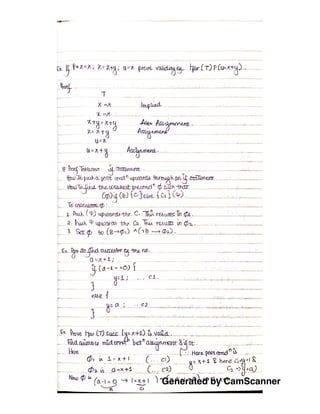 Ex. If z=x; z=z+y; u=z prove validity eg. ⊢par (T) P (u=x+y).
Proof
T
x=x Implied
x=x
x+y = x+y Assignment
z = x+y Assignment
u=z
u = x+y Assignment.
# Proof Tableaux if statement
How to push a post condⁿ upwards through an if statement
How to find the weakest precondⁿ Φ such that
(Φ) if (B) {C₁} else {C₂} (Ψ)
To calculate Φ:
1. Push (Ψ) upwards thr. C₁. This results in Φ₁.
2. Push Ψ upwards thr. C₂. This results in Φ₂.
3. Set Φ to (B→Φ₁) ^ (¬B → Φ₂).
Ex. to find successor of the no.
a = x+1;
if (a-1 == 0) {
y=1; ... C1
}
else {
y=a; ... C2
}
Ex. Prove ⊢par (T) Succ (y=x+1) is valid.
mid condⁿ betⁿ assignment & if
Here
Φ₁ is 1 = x+1 (... C₁)
Φ₂ is a = x+1 (... C₂)
Here post condⁿ is
y = x+1 & here C₁ y=1 &
C₂ → y=a)
Now Φ is (a-1=0 → 1=x+1)
Generated by CamScanner